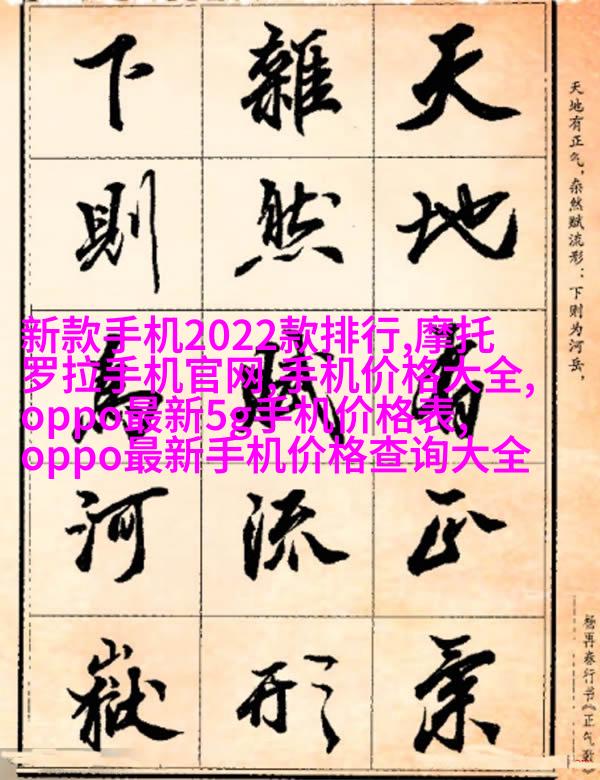 天地有正氣
雜然賦流形
下則為河嶽
天地有正气，杂然赋流形：下则为河岳，
杨再春行书《正气歌》
新款手机2022款排行,摩托
罗拉手机官网,手机价格大全,
oppo最新5g手机价格表,
oppo最新手机价格查询大全